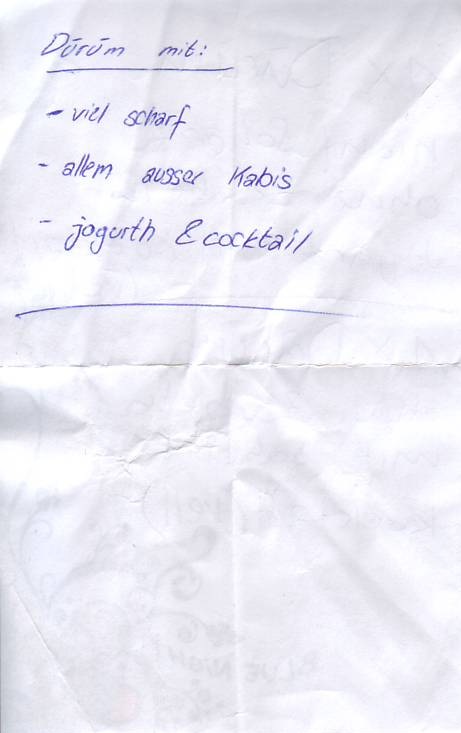 Dürüm mit:
- viel scharf
- allem ausser Kabis
- jogurth & cocktail